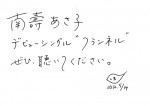 南壽 あさ子
デビューシングル"フランネル"
ぜひ、聴いてください。